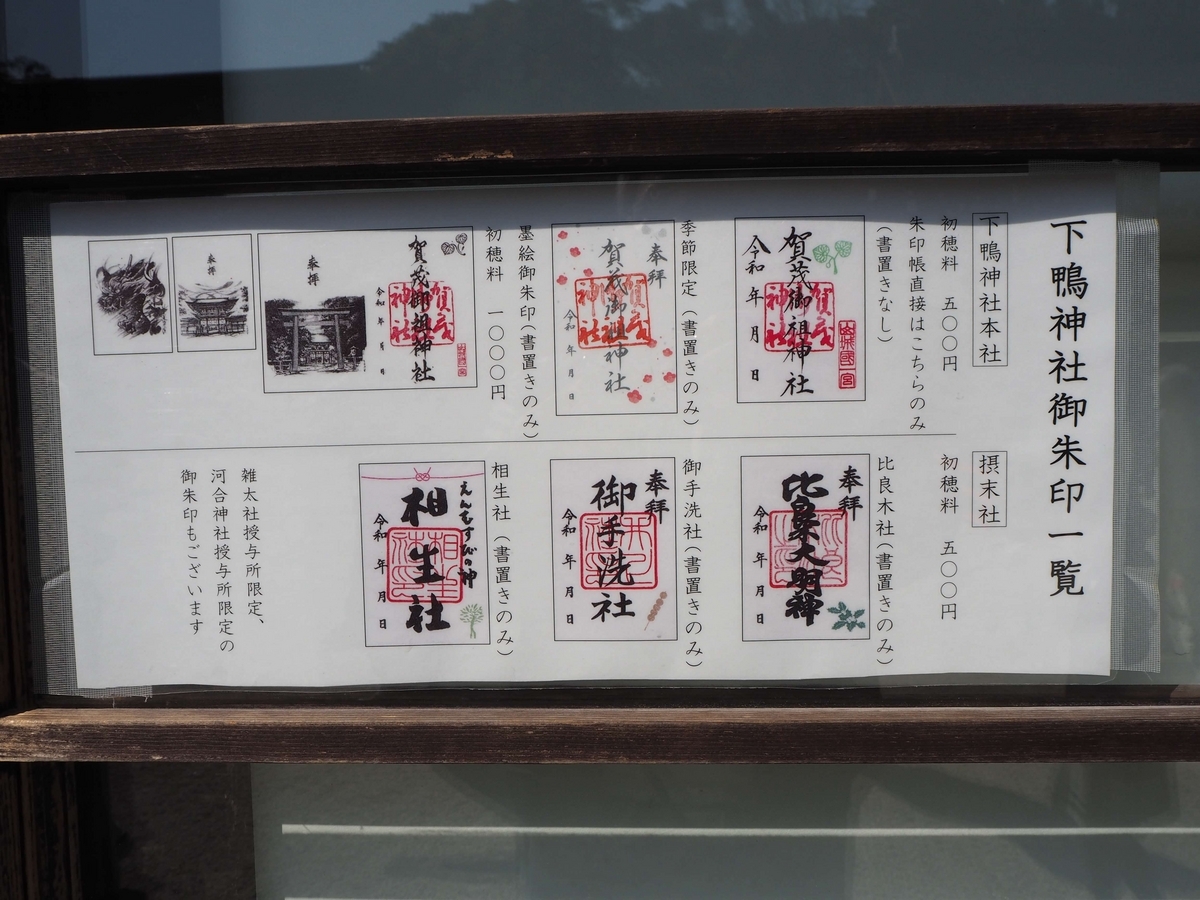 下鴨神社御朱印一覧
下鴨神社本社
初穂料 五〇〇円
朱印帳直接はこちらのみ
(書置きなし)
賀茂御祖神社
山城國一宮
賀茂神社
令和 年 月 日
季節限定(書置きのみ)
奉拝
賀茂御祖神社
賀茂神社
令和 年 月 日
墨絵御朱印(書置きのみ)
初穂料 一〇〇〇円
賀茂御祖神社
賀茂神社
令和 年 月 日
奉拝
奉拝
摂末社
初穂料 五〇〇円
比良木社(書置きのみ)
奉拝
比良木大明神
令和 年 月 日
御手洗社(書置きのみ)
奉拝
御手洗社
令和 年 月 日
相生社(書置きのみ)
えんむすびの神
相生社
令和 年 月 日
雑太社授与所限定、
河合神社授与所限定の
御朱印もございます